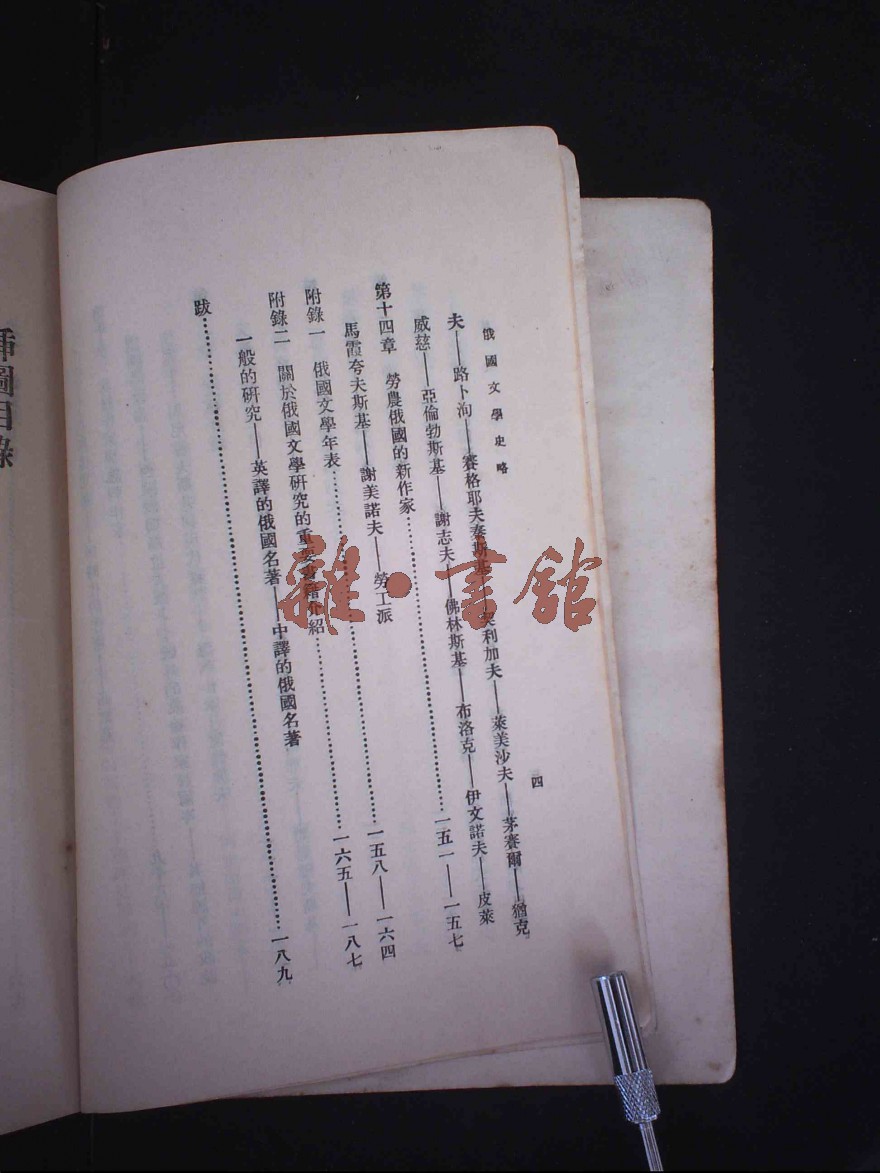 俄國文學史略
四
夫——路卜洵——賽格耶夫秦斯基——利加夫——萊美沙夫——茅賽爾——猶克
威慈——亞倫勃斯基——謝志夫——佛林斯基——布洛克——伊文諾夫——皮萊
第十四章 勞農俄國的新作家……一五一——一五七
馬霞夸夫斯基——謝美諾夫——勞工派
附錄一 俄國文學年表……一五八——一六四
附錄二 關於俄國文學研究的重要書籍介紹……一六五——一八七
一般的研究——英譯的俄國名著——中譯的俄國名著
跋……一八九
插圖目錄
雜·書館